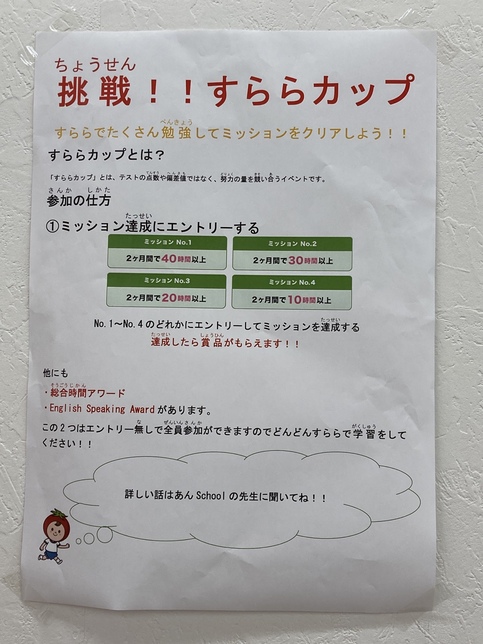 挑戦！！すららカップ
すららでたくさん勉強してミッションをクリアしよう！！
すららカップとは？
「すららカップ」とは、テストの点数や偏差値ではなく、努力の量を競い合うイベントです。
参加の仕方
①ミッション達成にエントリーする
ミッション No.1
2ヶ月間で40時間以上
ミッション No.2
2ヶ月間で30時間以上
ミッション No.3
2ヶ月間で20時間以上
ミッション No.4
2ヶ月間で10時間以上
No.1～No.4のどれかにエントリーしてミッションを達成する
達成したら賞品がもらえます！！
他にも
・総合時間アワード
・English Speaking Awardがあります。
この2つはエントリー無しで全員参加ができますのでどんどんすららで学習をして
ください！！
詳しい話はあんSchoolの先生に聞いてね！！